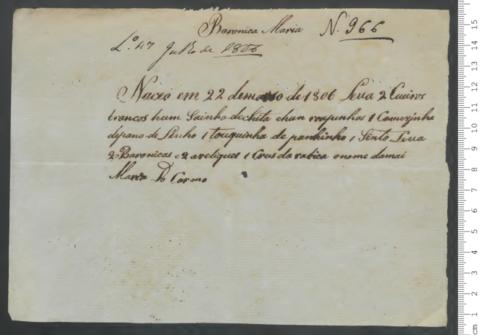 Baronica Maria N. 966
L.º 47 Julho de 1806
Naceo em 22 de março de 1806 Leva 2 Cueiros
brancos hum Sainho de chita chan roupinhas 1 Camizinha
de pano de Linho 1 touquinha de paninho 1 Sinto Leva
2 Baronicas e 2 1 Crus da o nome da mai
Maria Do Carmo